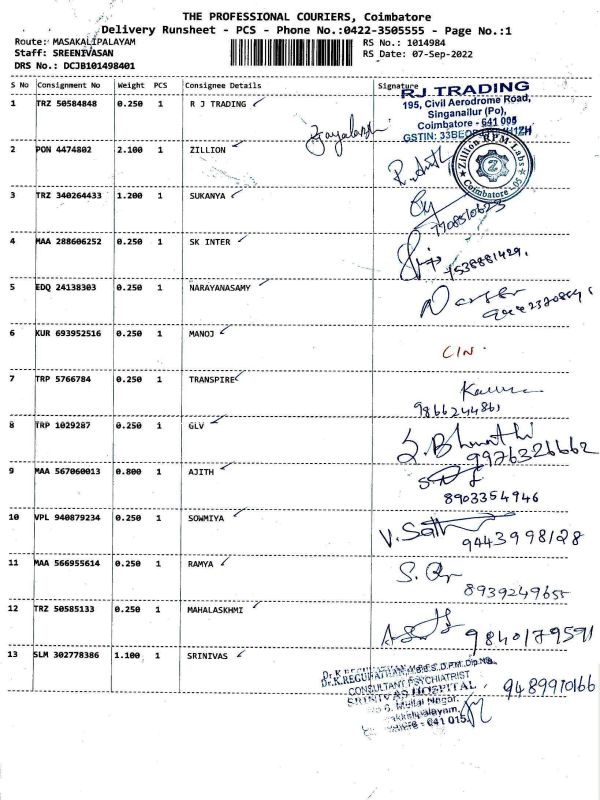 THE PROFESSIONAL COURIERS, Coimbatore
Delivery Runsheet - PCS - Phone No.:0422-3505555 - Page No.:1
Route: MASAKALIPALAYAM RS No.: 1014984
Staff: SREENIVASAN RS Date: 07-Sep-2022
DRS No.: DCJB101498401
S No Consignment No Weight PCS Consignee Details Signature
1 TRZ 50584848 0.250 1 R J TRADING
RJ TRADING
195, Civil Aerodrome Road,
Singanallur (Po),
Coimbatore - 641 005
GSTIN: 33BE
2 PON 4474802 2.100 1 ZILLION
Zillion RPM Labs
Coimbatore - 05
3 TRZ 340264433 1.200 1 SUKANYA
7708510623
4 MAA 288606252 0.250 1 SK INTER
7538881429
5 EDQ 24138303 0.250 1 NARAYANASAMY
6 KUR 693952516 0.250 1 MANOJ
C/N
7 TRP 5766784 0.250 1 TRANSPIRE
9866244861
8 TRP 1029287 0.250 1 GLV
9976326662
9 MAA 567060013 0.800 1 AJITH
8903354946
10 VPL 940879234 0.250 1 SOWMIYA
9443998128
11 MAA 566955614 0.250 1 RAMYA
8939249655
12 TRZ 50585133 0.250 1 MAHALASKHMI
9840179591
13 SLM 302778386 1.100 1 SRINIVAS
CONSULTANT PSYCHIATRIST
SRINIVAS HOSPITAL 9489970166
6, Mullai Nagar,
641 015